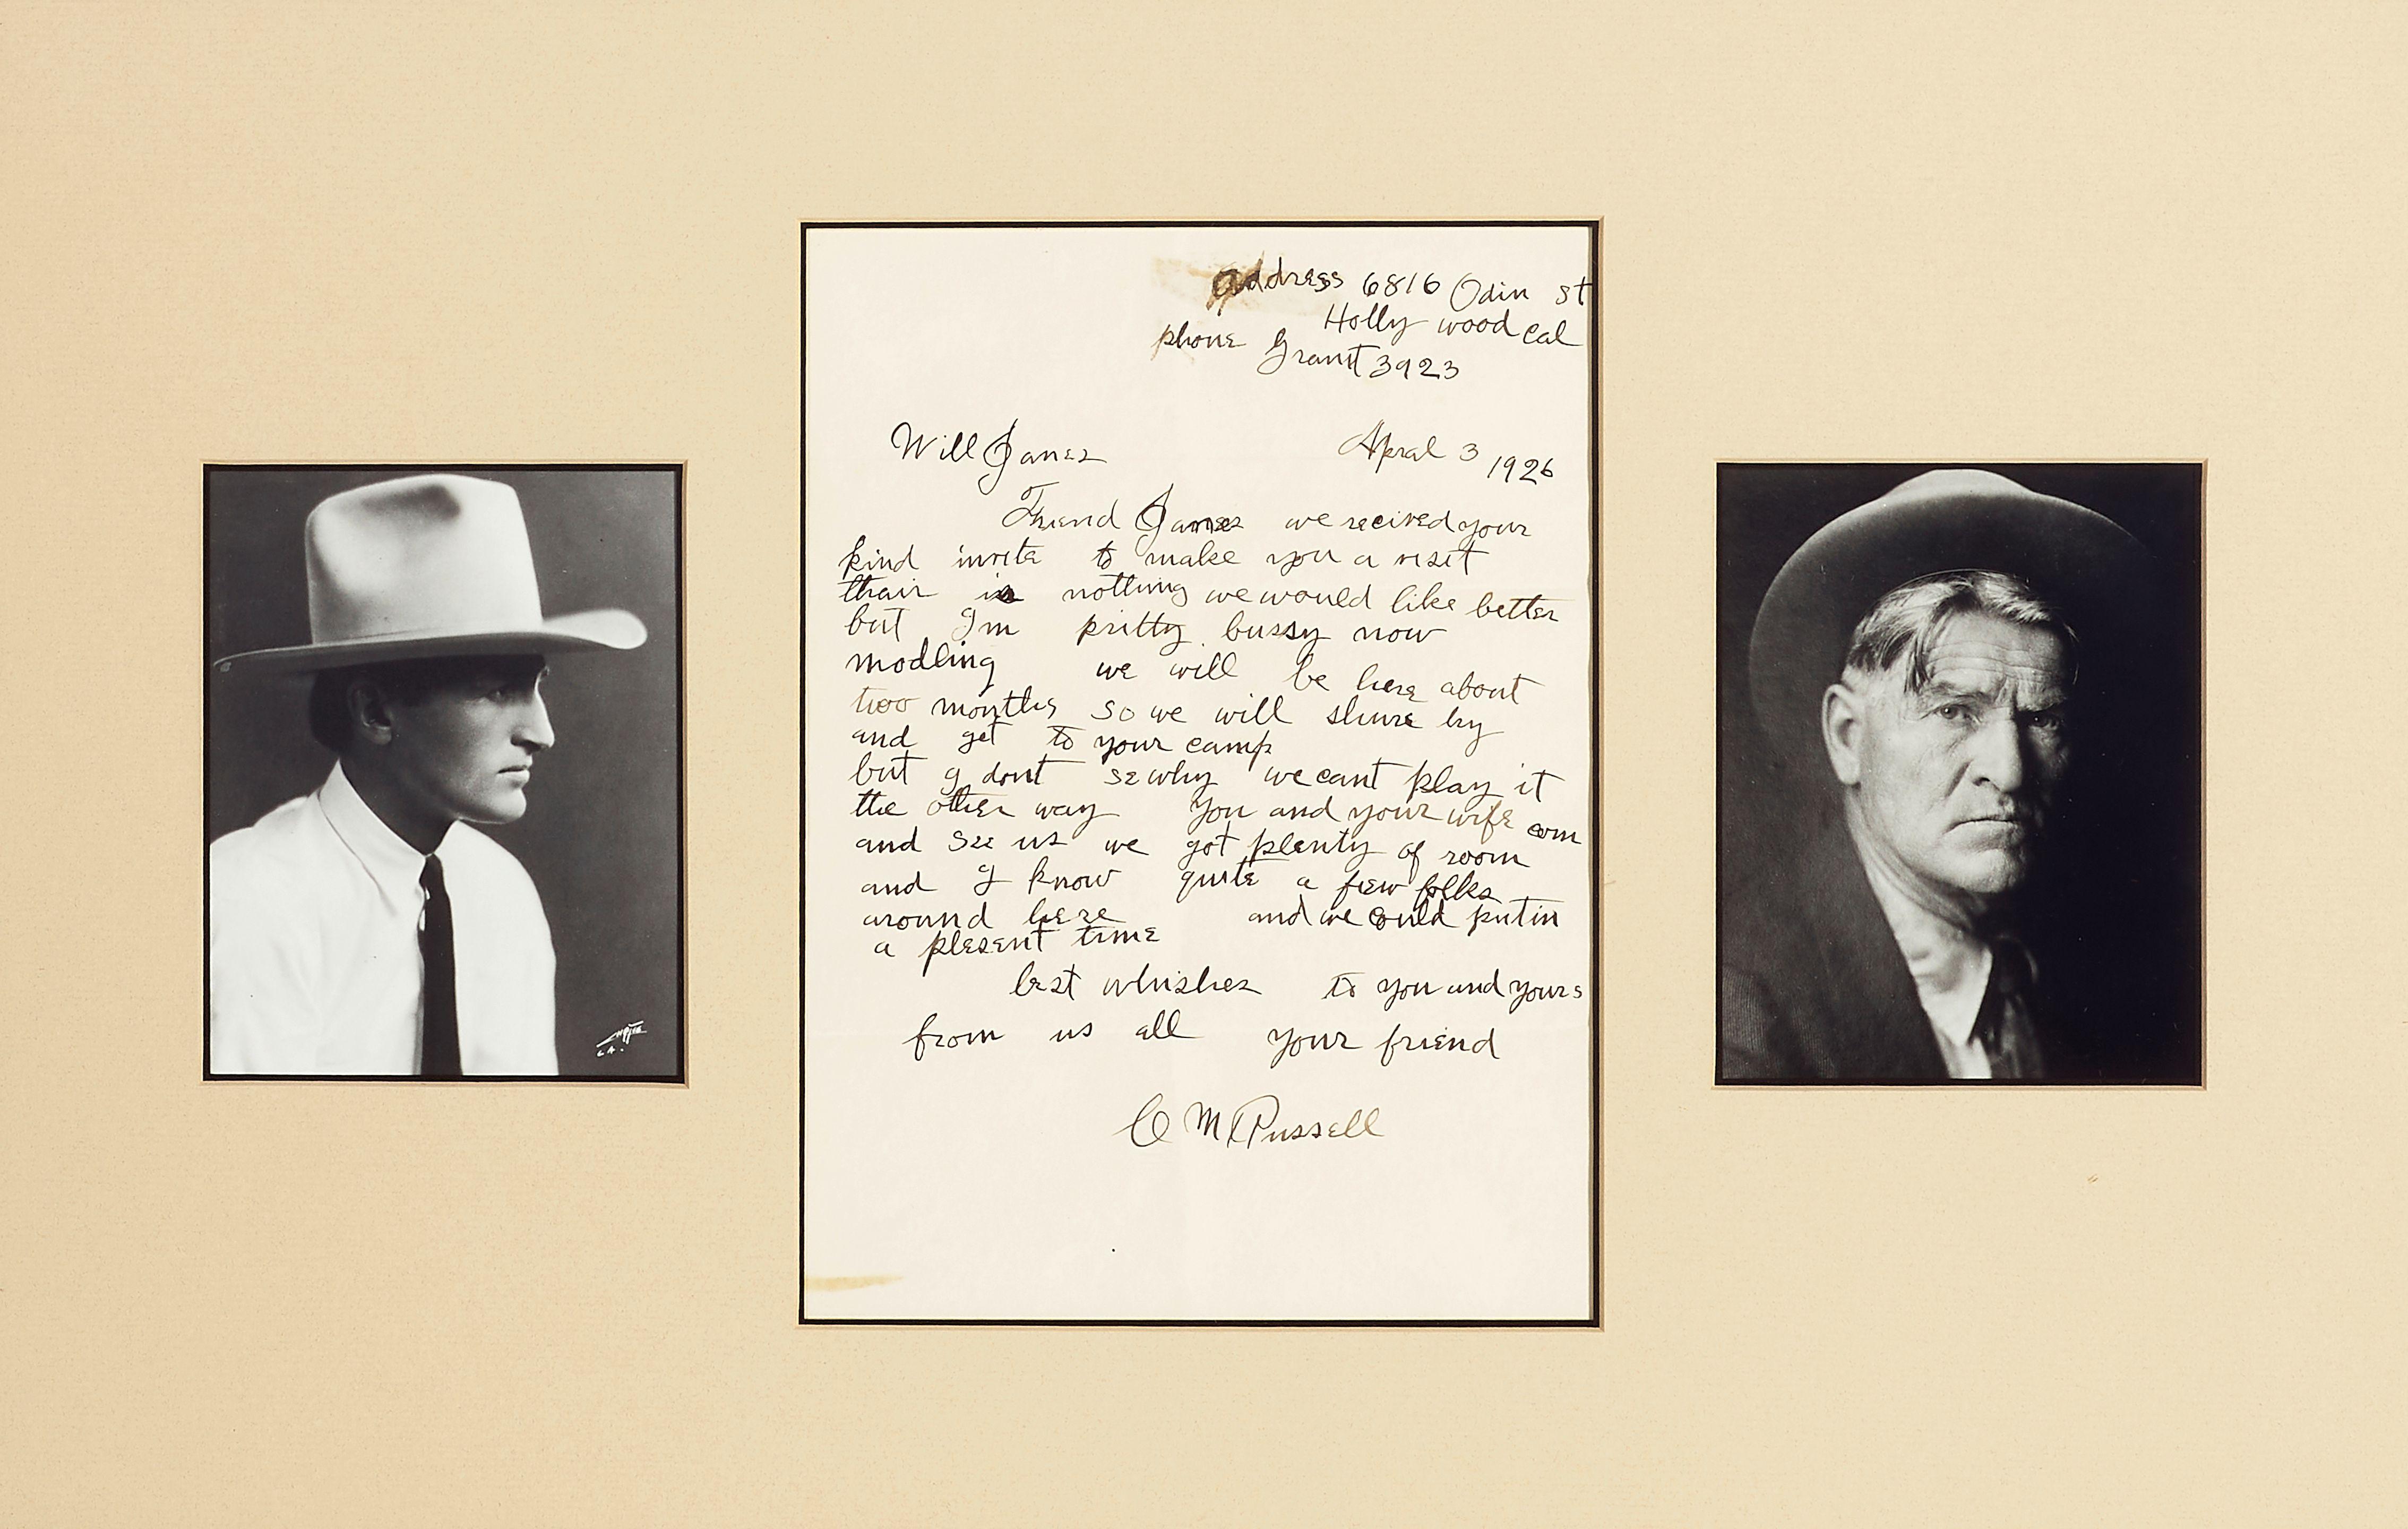 address 6816 Odin st
Holly wood cal
phone Granit 3923
Will James
Apral 3 1926
Friend James we recived your
kind invite to make you a visit
thair is nothing we would like better
but Im pritty bussy now
modling we will be here about
two months so we will shure try
and get to your camp
but I dont se why we cant play it
the other way You and your wife com
and see us we got plenty of room
and I know quite a few folks
around here and we could put in
a plesent time
best whishes to you and yours
from us all your friend
C M Russell
L.A.